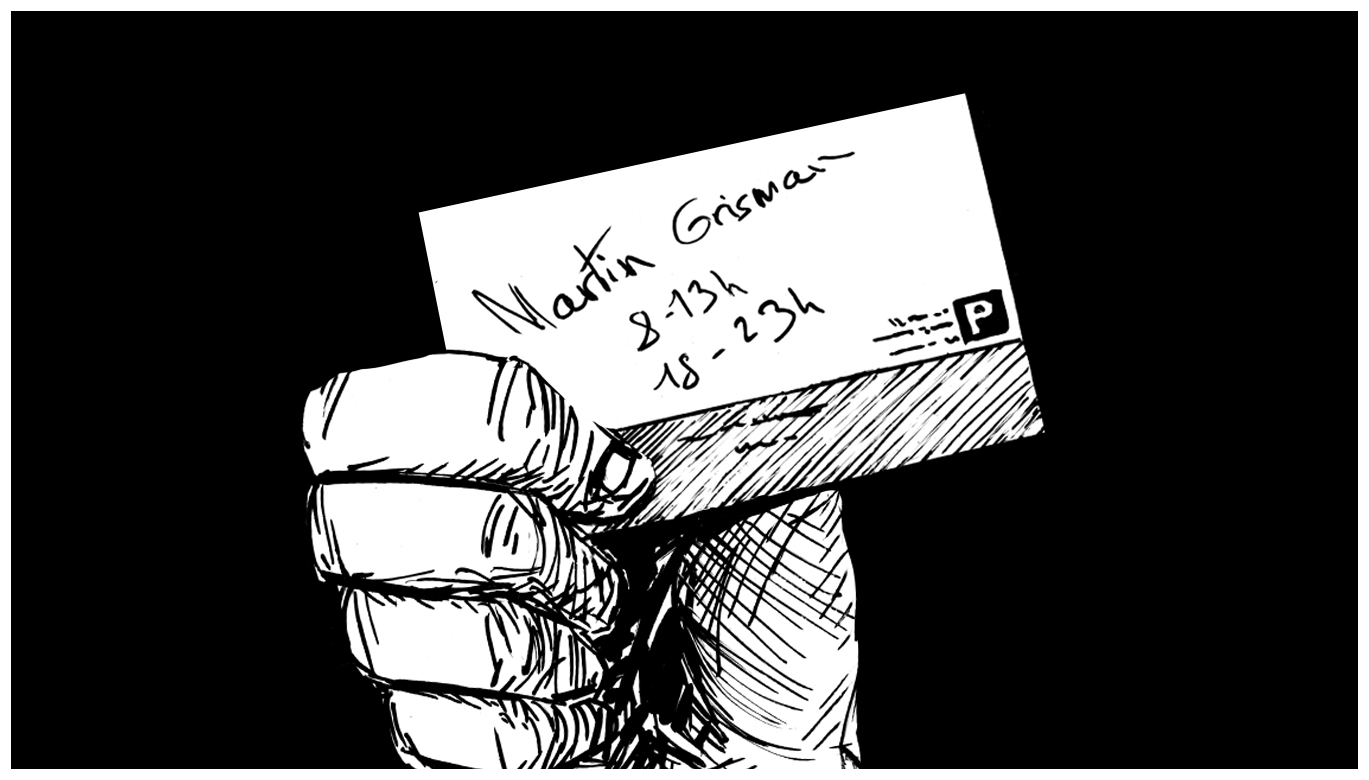 Martin Grisman
8-13h
18-23h
P